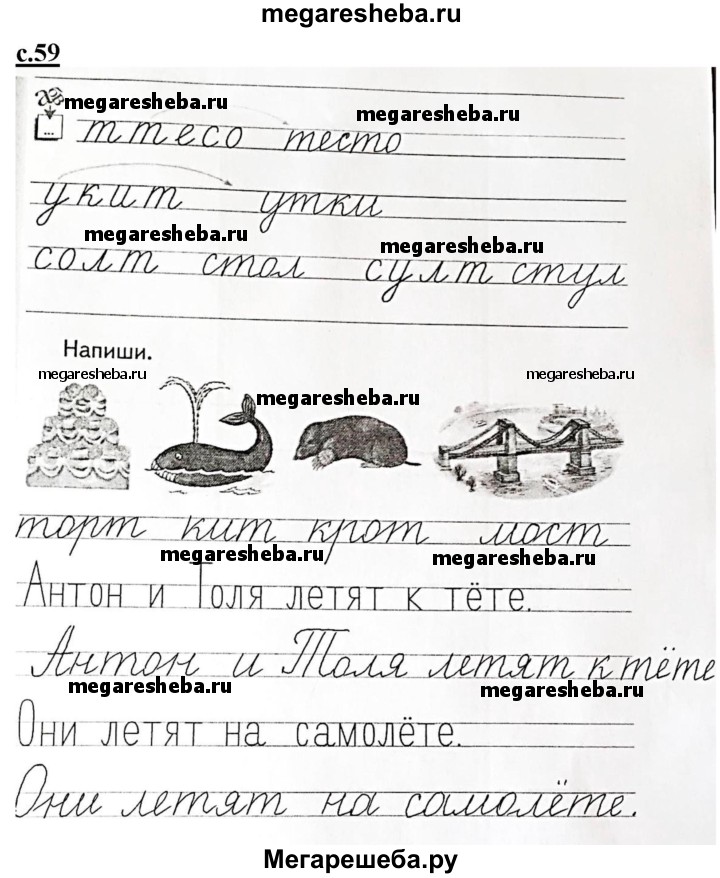 megaresheba.ru
с.59
megaresheba.ru megaresheba.ru
...
ттесо тесто
укит утки
megaresheba.ru megaresheba.ru
солт стол султ стул
Напиши.
megaresheba.ru megaresheba.ru megaresheba.ru
торт кит крот мост
megaresheba.ru megaresheba.ru
Антон и Толя летят к тёте.
Антон и Толя летят к тёте
megaresheba.ru megaresheba.ru
Они летят на самолёте.
Они летят на самолёте.
Мегарешеба.ру